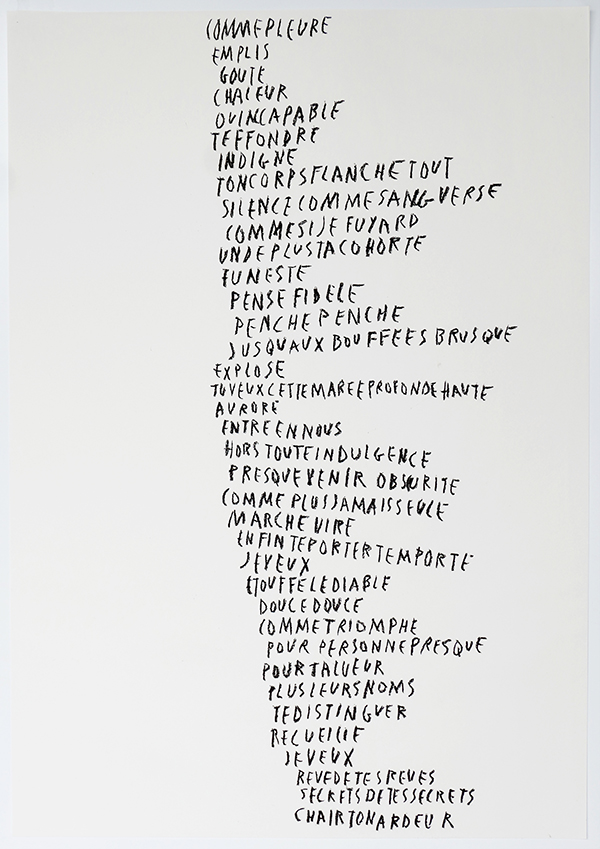 COMMEPLEURE
EMPLIS
GOUTE
CHALEUR
OUINCAPABLE
TEFFONDRE
INDIGNE
TONCORPSFLANCHETOUT
SILENCECOMMESANGVERSE
COMMESIJEFUYARD
UNDEPLUSTACOHORTE
FUNESTE
PENSEFIDELE
PENCHEPENCHE
JUSQUAUX BOUFFEES BRUSQUE
EXPLOSE
TUVEUXCETTEMAREEPROFONDEHAUTE
AURORE
ENTREENNOUS
HORSTOUTEINDULGENCE
PRESQUEVENIR OBSURITE
COMME PLUSJAMAISSEULE
MARCHEVIRE
ENFINTEPORTERTEMPORTE
JEVEUX
ETOUFFELEDIABLE
DOUCEDOUCE
COMMETRIOMPHE
POUR PERSONNEPRESQUE
POURTALUEUR
PLUSLEURSNOMS
TEDISTINGUER
RECUEILLE
JEVEUX
REVEDETESREVES
SECRETSDETESSECRETS
CHAIRTONARDEUR